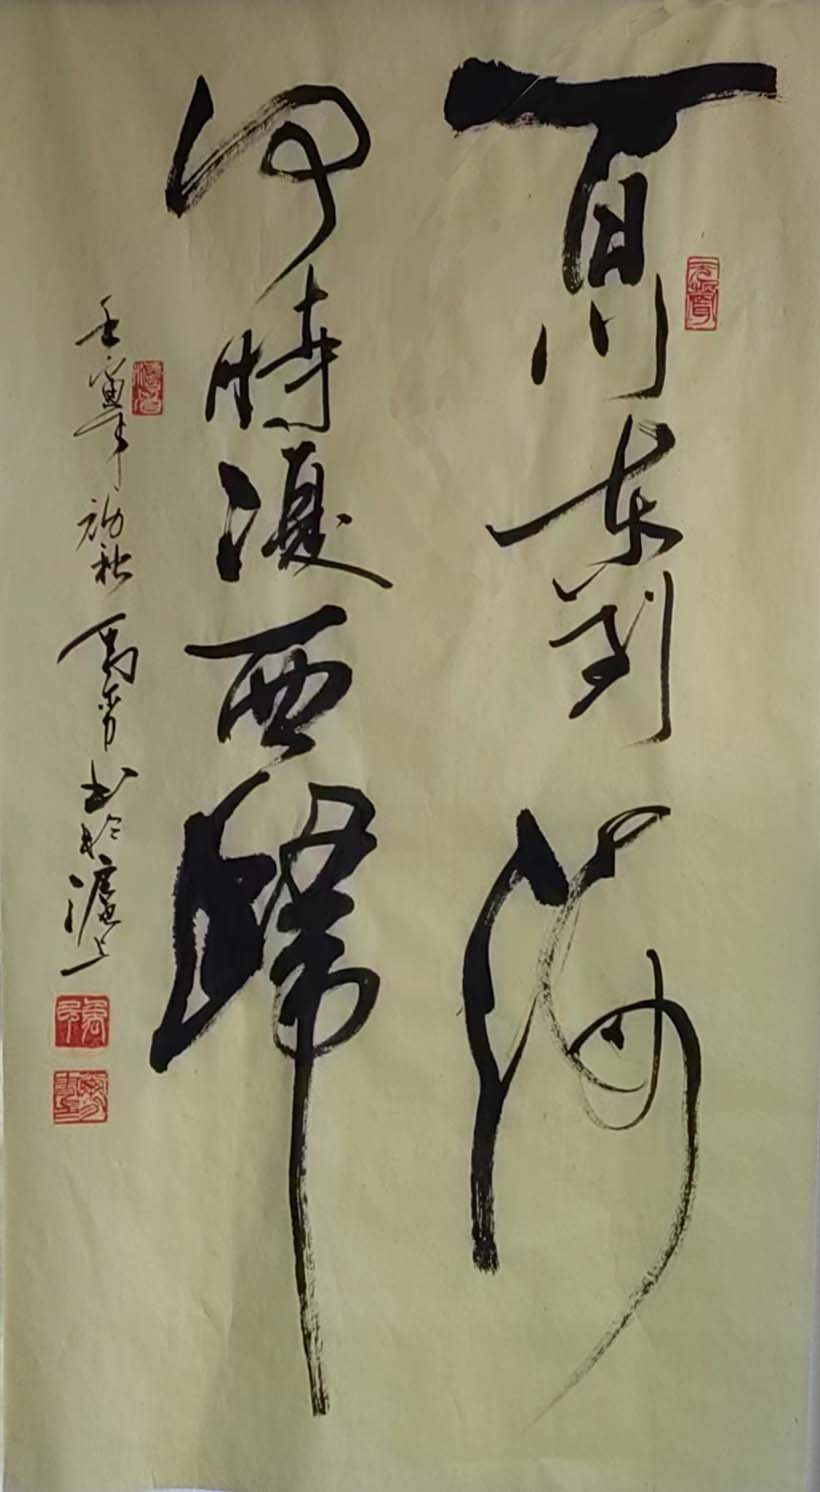 百川东到海
何时復西歸
壬寅年初秋 万青书於滬上